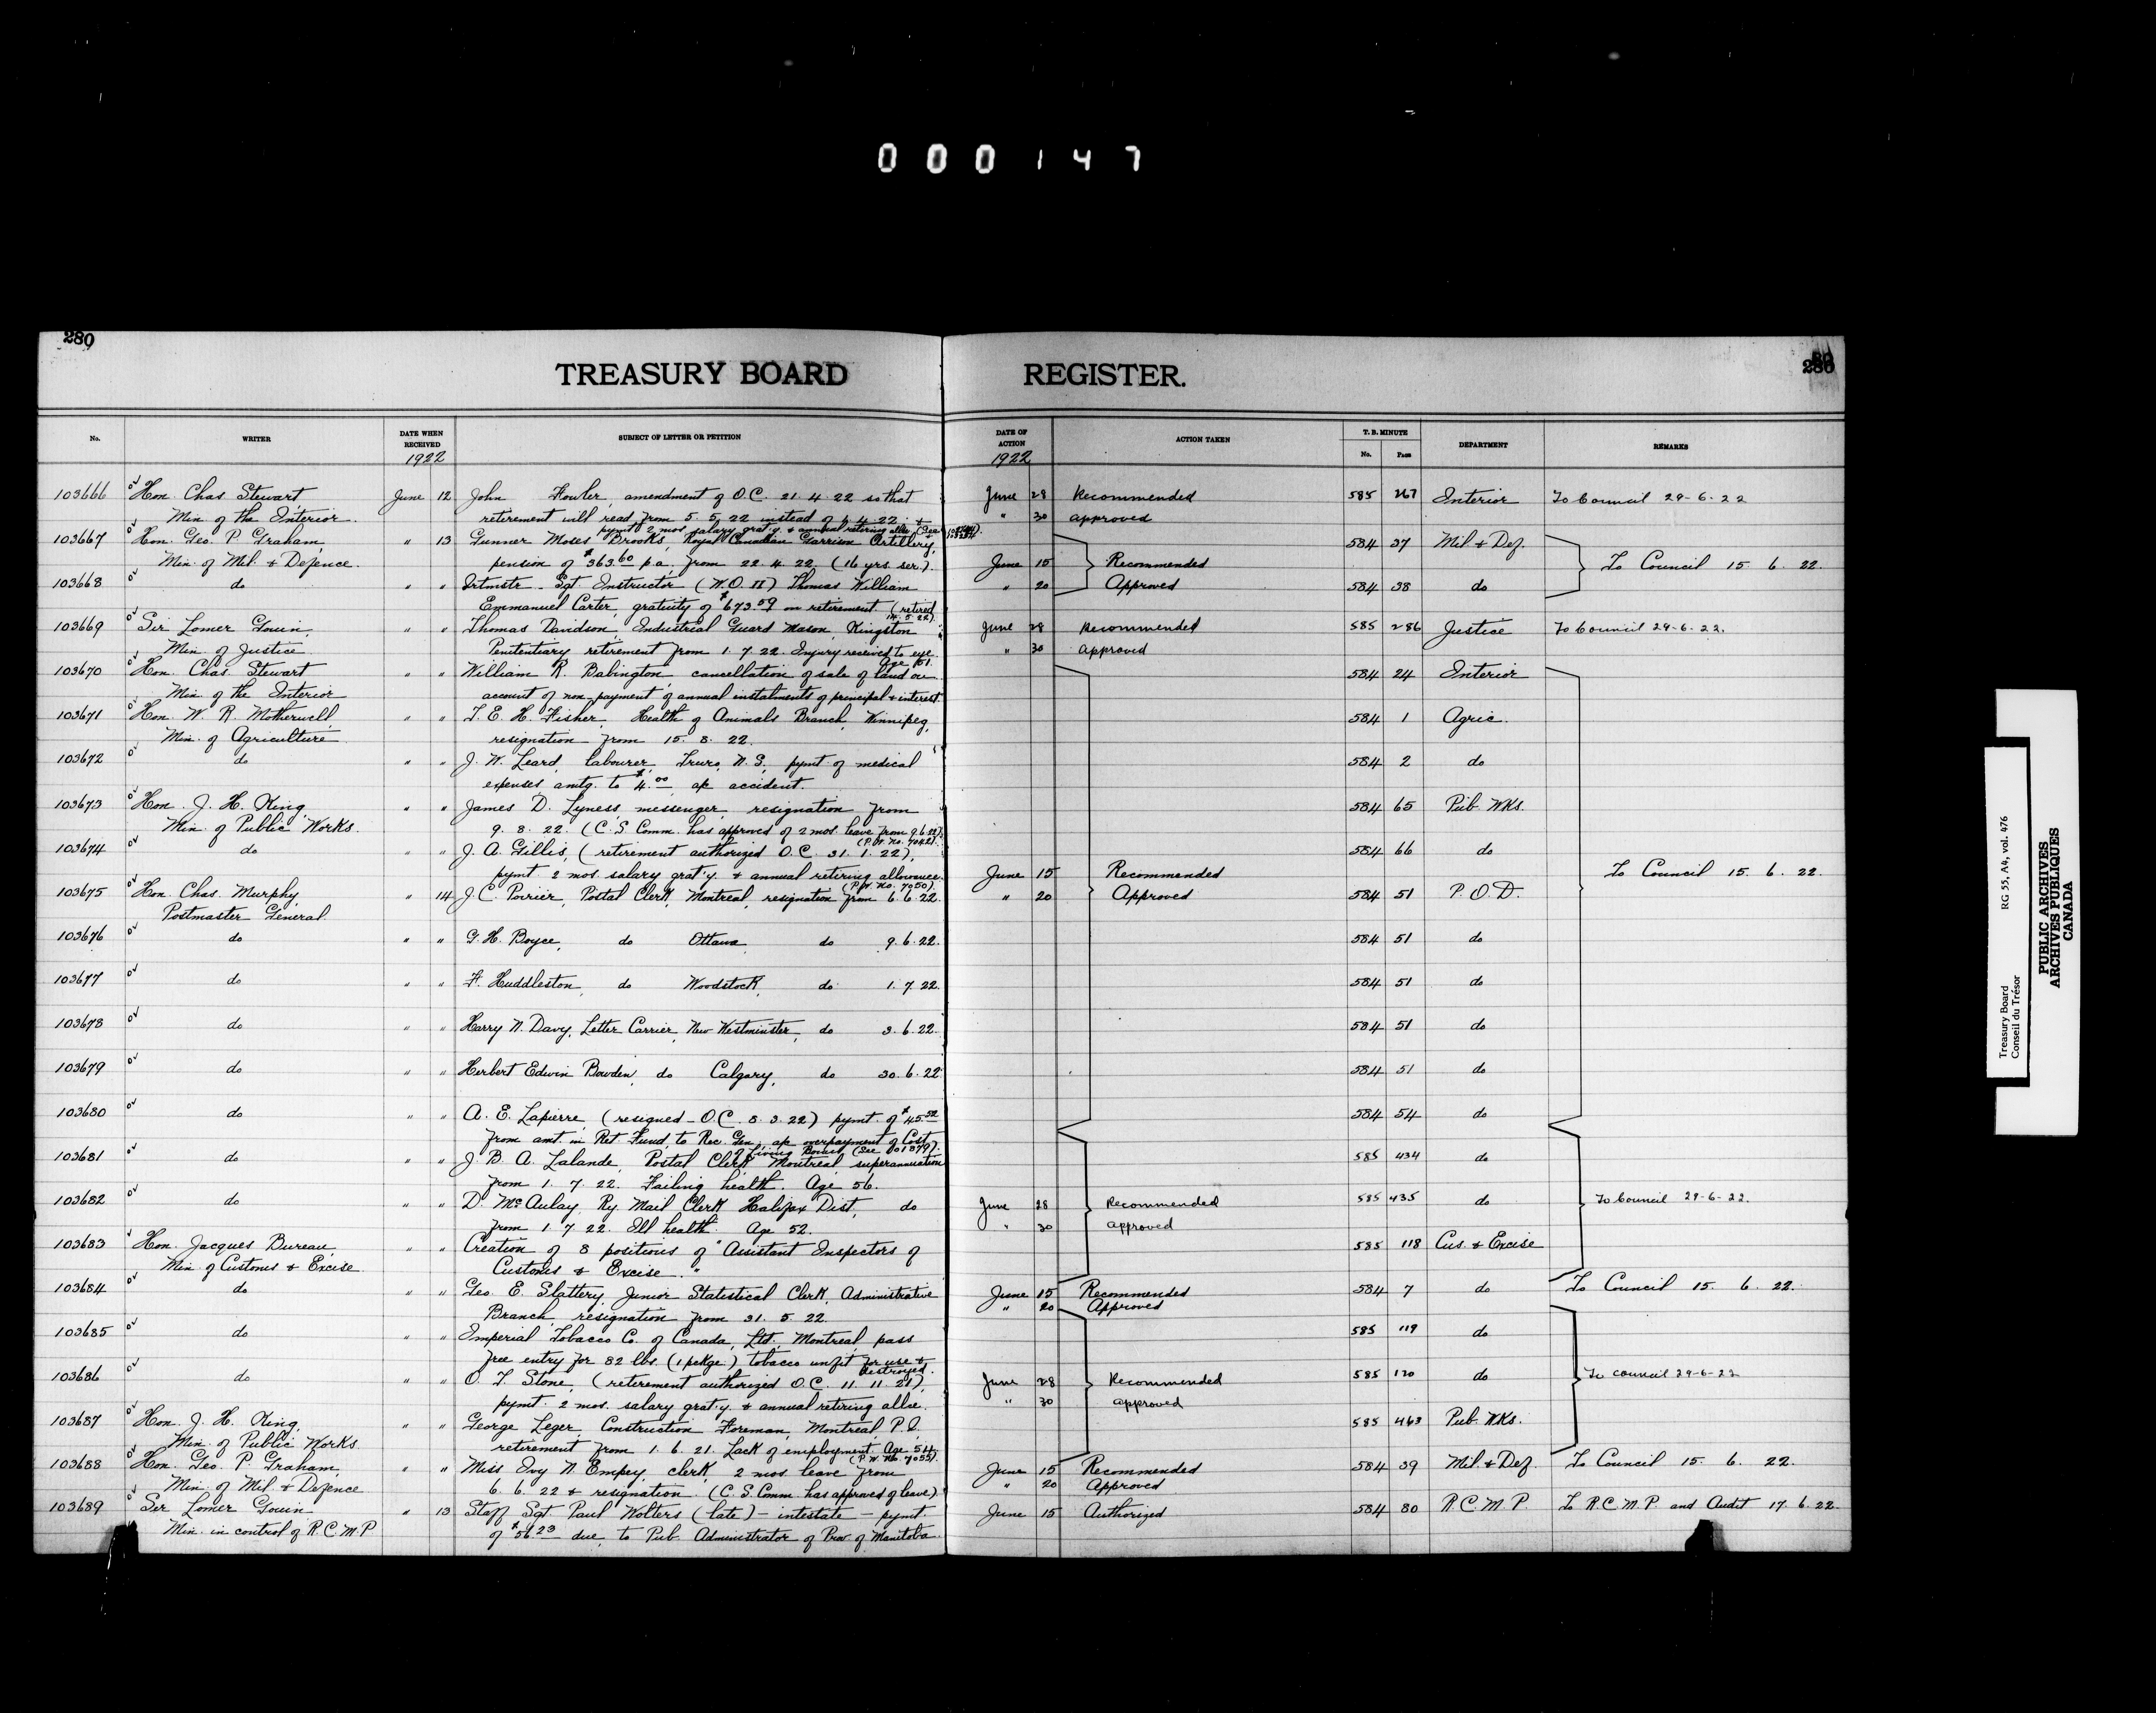 000147
280
280
TREASURY BOARD REGISTER.
No. WRITER DATE WHEN RECEIVED SUBJECT OF LETTER OR PETITION DATE OF ACTION ACTION TAKEN T. B. MINUTE No. Page DEPARTMENT REMARKS
1922 1922
103666 Hon. Chas Stewart June 12 John Fowler, amendment of O.C. 21.4.22 so that June 28 Recommended 585 267 Interior To Council 29-6-22
Min. of the Interior. retirement will read from 5.5.22 instead of 1.4.22 & " 30 approved
pymt 2 mos. salary grat'y. & annual retiring allce
103667 Hon. Geo. P. Graham, " 13 Gunner Moses Brooks, Royal Canadian Garrison Artillery, 584 37 Mil & Def.
Min. of Mil. & Defence. pension of $363.60 p.a. from 22.4.22. (16 yrs. ser.). June 15 Recommended To Council 15.6.22.
103668 do " " Sgt. Instructor (W.O. II) Thomas William " 20 Approved 584 38 do
Emmanuel Carter, gratuity of $673.59 on retirement (retired 14.5.22).
103669 Sir Lomer Gouin, " " Thomas Davidson, Industrial Guard Mason, Kingston June 28 Recommended 585 286 Justice To Council 29-6-22.
Min. of Justice. Penitentiary retirement from 1.7.22. Injury received to eye. " 30 approved
Age 61.
103670 Hon. Chas. Stewart " " William R. Babington cancellation of sale of land on 584 24 Interior
Min. of the Interior account of non payment of annual instalments of principal & interest.
103671 Hon. W. R. Motherwell, " " T. E. H. Fisher, Health of Animals Branch, Winnipeg, 584 1 Agric.
Min. of Agriculture resignation from 15.8.22.
103672 do " " J. W. Leard, labourer, Truro, N.S., pymt of medical 584 2 do
expenses amtg. to $4.00 a/c accident.
103673 Hon. J. H. King, " " James D. Lyness, messenger, resignation from 584 65 Pub. Wks.
Min. of Public Works. 9.8.22. (C.S. Comm. has approved of 2 mos. leave from 9.6.22).
(P.W. No. 7042).
103674 do " " J. A. Gillis, (retirement authorized O.C. 31.1.22), 584 66 do
pymt 2 mos. salary grat'y. & annual retiring allowance. June 15 Recommended To Council 15.6.22.
(P.W. No. 7050).
103675 Hon. Chas. Murphy, " 14 J. C. Poirier, Postal Clerk, Montreal, resignation from 6.6.22. " 20 Approved 584 51 P.O.D.
Postmaster General.
103676 do " " G. H. Boyce, do Ottawa do 9.6.22. 584 51 do
103677 do " " F. Huddleston, do Woodstock, do 1.7.22. 584 51 do
103678 do " " Harry N. Davy, Letter Carrier, New Westminster, do 3.6.22. 584 51 do
103679 do " " Herbert Edwin Bowden, do Calgary, do 30.6.22 584 51 do
103680 do " " A. E. Lapierre, (resigned - O.C. 8.3.22) pymt. of $45.52 584 54 do
from amt. in Ret. Fund to Rec. Gen. a/c overpayment of Cost
of Living Bonus, (See 101879).
103681 do " " J. B. A. Lalande, Postal Clerk, Montreal, superannuation 585 434 do
from 1.7.22. Failing health. Age 56.
103682 do " " D. McAulay, Ry. Mail Clerk Halifax Dist, do June 28 Recommended 585 435 do To Council 29-6-22.
from 1.7.22. Ill health. Age 52. " 30 approved
103683 Hon. Jacques Bureau, " " Creation of 8 positions of "Assistant Inspectors of 585 118 Cus. & Excise
Min. of Customs & Excise. Customs & Excise."
103684 do " " Geo. E. Slattery, Junior Statistical Clerk, Administrative June 15 Recommended 584 7 do To Council 15.6.22.
Branch, resignation from 31.5.22. " 20 Approved
103685 do " " Imperial Tobacco Co. of Canada, Ltd. Montreal, pass 585 119 do
free entry for 82 lbs. (1 pckge.) tobacco unfit for use & destroyed.
103686 do " " O. T. Stone, (retirement authorized O.C. 11.11.21), June 28 Recommended 585 120 do To council 29-6-22
pymt. 2 mos. salary grat'y. & annual retiring allce. " 30 approved
103687 Hon. J. H. King, " " George Leger, Construction Foreman, Montreal, P.Q. 585 463 Pub. Wks.
Min. of Public Works retirement from 1.6.21. Lack of employment. Age 54.
(P.W. No. 7055).
103688 Hon. Geo. P. Graham, " " Miss Ivy N. Empey, clerk, 2 mos. leave from June 15 Recommended 584 39 Mil. & Def. To Council 15.6.22.
Min. of Mil. & Defence 6.6.22 & resignation. (C.S. Comm. has approved of leave) " 20 Approved
103689 Sir Lomer Gouin " 13 Staff Sgt. Paul Wolters (late) - intestate - pymt. June 15 Authorized 584 80 R.C.M.P. To R.C.M.P. and Audit 17.6.22.
Min. in control of R.C.M.P of $56.23 due, to Pub. Administrator of Prov. of Manitoba.
Treasury Board RG 55, A4, vol. 476
Conseil du Trésor
PUBLIC ARCHIVES
ARCHIVES PUBLIQUES
CANADA